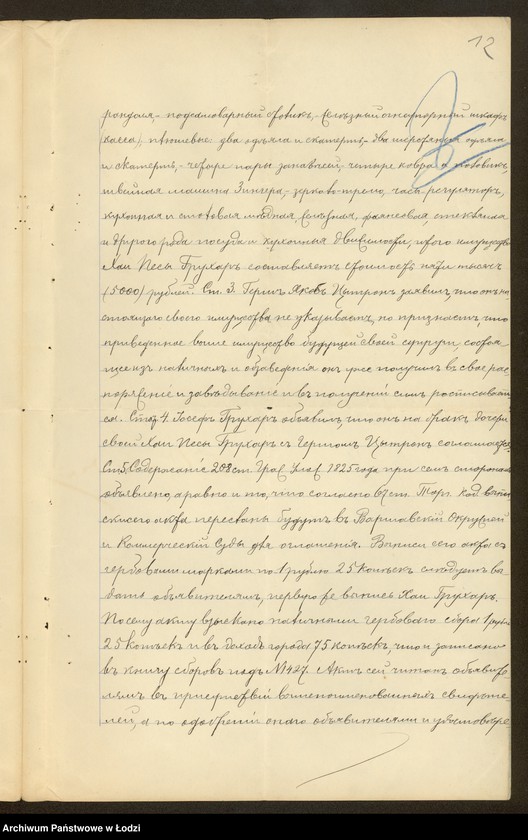 12
рондоля,- подсамоварный столик,- железный огнеупорный шкафъ
(касса), плюшевое: два одѣяла и скатерть,- два шерстяныя одѣяла
и скатерть,- четыре пары занавѣсей, четыре ковра и половикъ,
швейная машина Зингера,- зеркало-трюмо, часы-регуляторъ,
кухонная и столовая мѣдная, желѣзная, фаянсовая, стеклянная
и другого рода посуда и кухонныя движимости, итого имущество
Хаи Песы Грухаръ составляетъ стоимость пять тысячъ
(5000) рублей. Ст. 3. Гершъ Яковъ Цытронъ заявилъ, что онъ на-
стоящаго своего имущества не указываетъ, но признаетъ, что
приведенное выше имущество будущей своей супруги, состоя-
щее изъ наличныхъ и обзаведенія онъ уже получилъ въ свое рас-
поряженіе и завѣдываніе и въ полученіи симъ расписывает-
ся. Ст. 4. Іосефъ Грухаръ объявилъ, что онъ на бракъ дочери
своей Хаи Песы Грухаръ съ Гершомъ Цытронъ соглашается.
Ст. 5. Содержаніе 208 ст. Граж. Улож. 1825 года, при семъ сторонамъ
объявлено, а равно и то, что согласно 67 ст. Тор. Код. выпи-
ски сего акта пересланы будутъ въ Варшавскій Окружной
и Коммерческій Суды для оглашенія. Выписи сего акта съ
гербовыми марками по 1 рублю 25 копѣекъ слѣдуетъ вы-
дать объявителямъ, первую же выпись Хаи Грухаръ.
По сему акту взыскано наличными гербоваго сбора 1 рубль
25 копѣекъ и въ доходъ города 75 копѣекъ, что и записано
въ книгу сборовъ подъ №1427. Актъ сей читанъ объявите-
лямъ въ присутствіи вышепоименованныхъ свидѣте-
лей, а по одобреніи онаго объявителями и удостовѣре-
Archiwum Państwowe w Łodzi